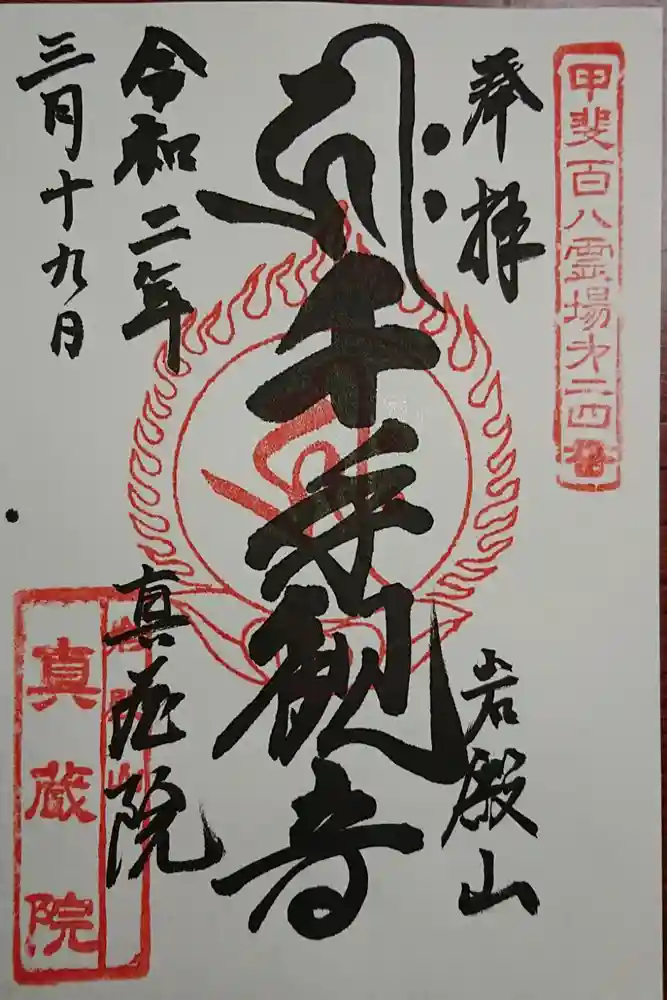 甲斐百八霊場第二四番
奉拝
岩殿山
千手観音
令和二年
三月十九日
真蔵院
岩殿山
真蔵院